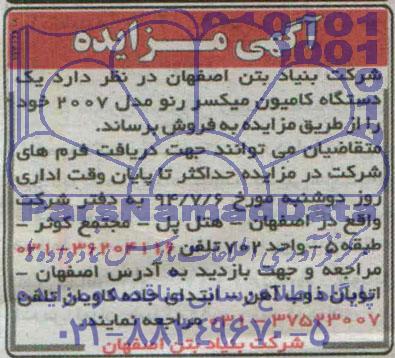 آگهی مزایده
شرکت بنیاد بتن اصفهان در نظر دارد یک
دستگاه کامیون میکسر رنو مدل ۲۰۰۷ خود
را از طریق مزایده به فروش برساند.
متقاضیان می توانند جهت دریافت فرم های
شرکت در مزایده حداکثر تا پایان وقت اداری
روز دوشنبه مورخ ۹۴/۷/۶ به دفتر شرکت
واقع در اصفهان - هتل پل - مجتمع کوثر -
طبقه ۵ - واحد ۷۰۲ تلفن ۰۳۱-۳۶۲۰۴۱۱۶
مراجعه و جهت بازدید به آدرس اصفهان -
اتوبان ذوب آهن - ابتدای جاده کاویان تلفن
۰۳۱-۳۷۵۲۳۰۰۷ مراجعه نمایند.
شرکت بنیاد بتن اصفهان
ParsNamadData
۰۲۱-۸۸۳۴۹۶۷۰-۵